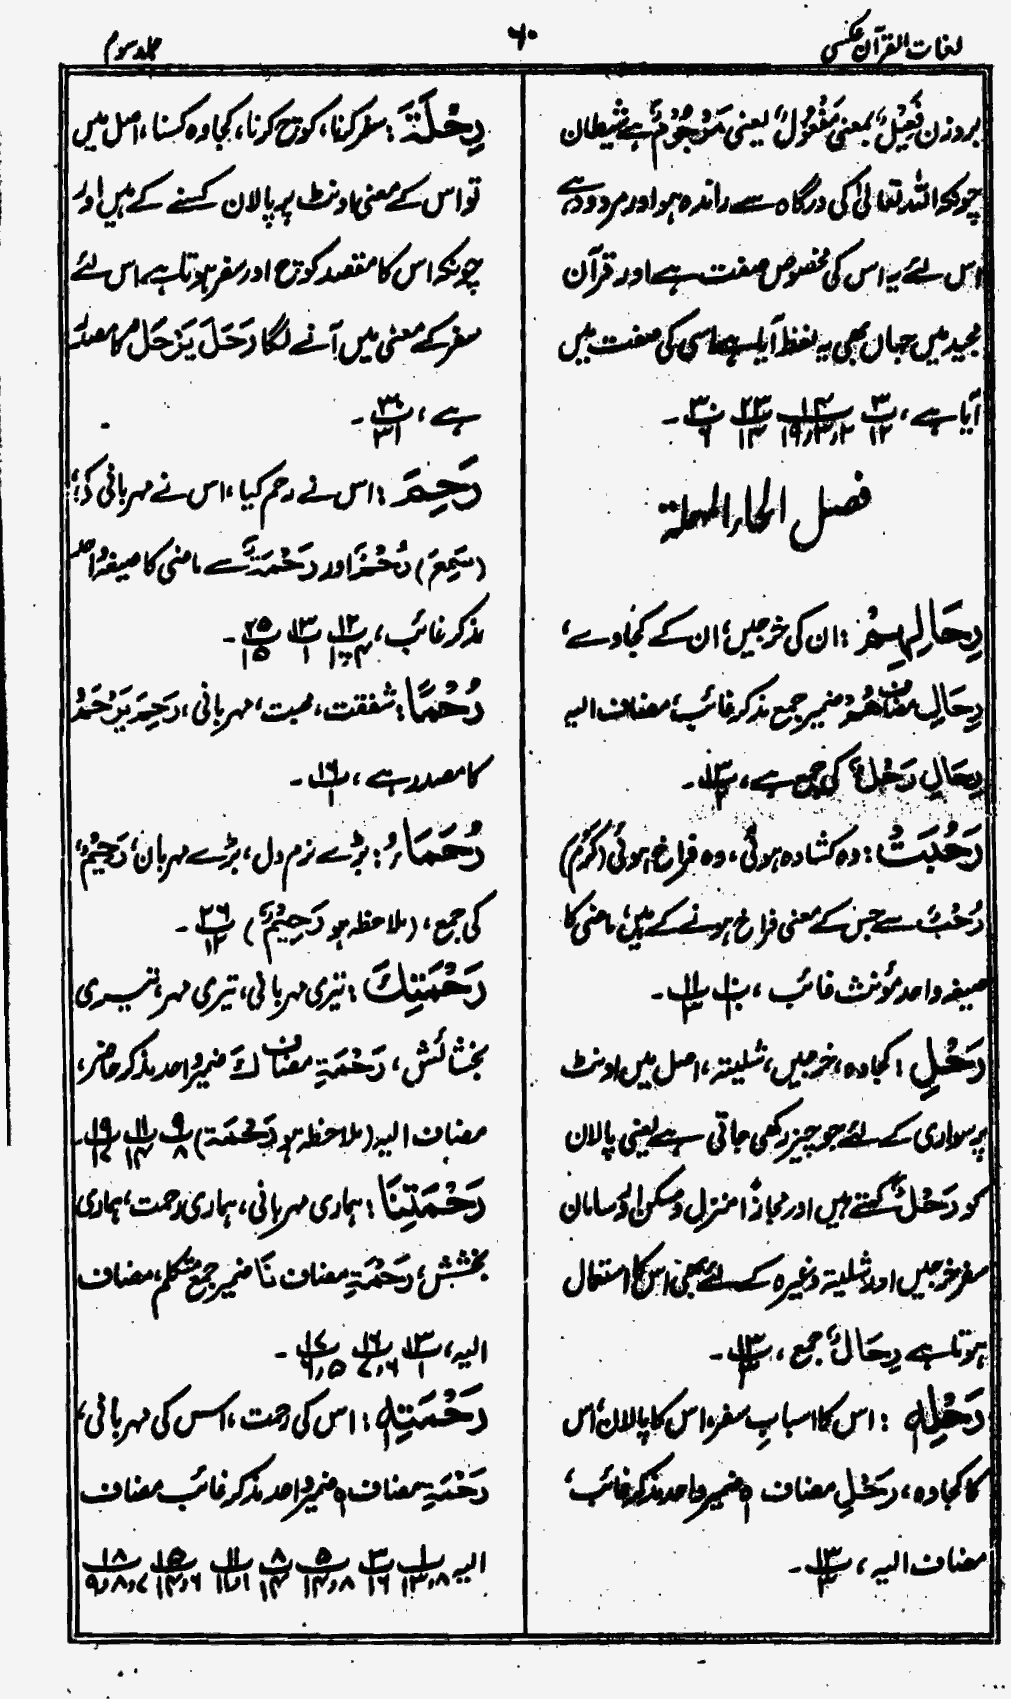 لغات القرآن عکسی
۶۰
جلد سوم
بروزن فَعِیْلٌ بمعنی مَفْعُوْلٌ یعنی مَرْجُوْمٌ ہے شیطان
چونکہ اللہ تعالیٰ کی درگاہ سے راندہ ہوا اور مردود ہے
اس لئے یہ اس کی مخصوص صفت ہے اور قرآن
مجید میں جہاں بھی یہ لفظ آیا ہے اسی کی صفت میں
آیا ہے، ۳/۱۲ ۱۴/۲،۳،۱۹ ۲۳/۱۴ ۳۰/۶ ۔
فصل الحاء المهملة
رِحَالِهِمْ : ان کی خرجیں، ان کے کجاوے،
رِحَالِ مضاف هُمْ ضمیر جمع مذکر غائب، مضاف الیہ
رِحَالِ رَحْلٌ کی جمع ہے، ۱۳/۲ ۔
رَحُبَتْ : وہ کشادہ ہوئی، وہ فراخ ہوئی (کَرُمَ)
رُحْبٌ سے جس کے معنی فراخ ہونے کے ہیں، ماضی کا
صیغہ واحد مؤنث غائب ، ۱۰/۱۰ ۱۱/۳ ۔
رَحْلِ : کجاوہ، خرجیں، شلیتہ، اصل میں اونٹ
پر سواری کے لئے جو چیز رکھی جاتی ہے یعنی پالان
کو رَحْلٌ کہتے ہیں اور مجازًا منزل و مسکن اور سامان
سفر خرجیں اور شلیتہ وغیرہ کے لئے بھی اس کا استعمال
ہوتا ہے رِحَالٌ جمع ، ۱۳/۳ ۔
رَحْلِهِ : اس کا اسبابِ سفر، اس کا پالان، اس
کا کجاوہ، رَحْلِ مضاف ہ ضمیر واحد مذکر غائب،
مضاف الیہ ، ۱۳/۳ ۔
رِحْلَةَ : سفر کرنا، کوچ کرنا، کجاوہ کسنا، اصل میں
تو اس کے معنی اونٹ پر پالان کسنے کے ہیں اور
چونکہ اس کا مقصد کوچ اور سفر ہوتا ہے، اس لئے
سفر کے معنی میں آنے لگا رَحَلَ یَرْحَلُ کا مصدر
ہے ، ۳۰/۳۱ ۔
رَحِمَ : اس نے رحم کیا، اس نے مہربانی کی،
(سَمِعَ) رُحْمٌ اور رَحْمَةٌ سے ماضی کا صیغہ واحد
مذکر غائب، ۱۲/۱،۴ ۱۳/۱ ۲۵/۱۵ ۔
رُحْمًا : شفقت، محبت، مہربانی، رَحِمَ یَرْحَمُ
کا مصدر ہے ، ۱۶/۱ ۔
رُحَمَاءُ : بڑے نرم دل، بڑے مہربان، رَحِیْمٌ
کی جمع، (ملاحظہ ہو رَحِیْمٌ) ۲۶/۱۲ ۔
رَحْمَتِكَ : تیری مہربانی، تیری مہر، تیری
بخشائش، رَحْمَةِ مضاف كَ ضمیر واحد مذکر حاضر،
مضاف الیہ (ملاحظہ ہو رَحْمَة) ۹/۸ ۱۱/۱۴ ۱۹/۱۷ ۔
رَحْمَتِنَا : ہماری مہربانی، ہماری رحمت، ہماری
بخشش، رَحْمَةِ مضاف نَا ضمیر جمع متکلم، مضاف
الیہ، ۱۳/۱ ۱۶/۶،۷ ۱۷/۵،۶ ۔
رَحْمَتِهِ : اس کی رحمت، اس کی مہربانی،
رَحْمَةِ مضاف ہ ضمیر واحد مذکر غائب مضاف
الیہ ۱/۸،۱۳ ۳/۱۶ ۵/۸،۱۴ ۸/۱۴ ۱۱/۱،۱۶ ۱۵/۶،۱۴ ۱۸/۷،۸،۹